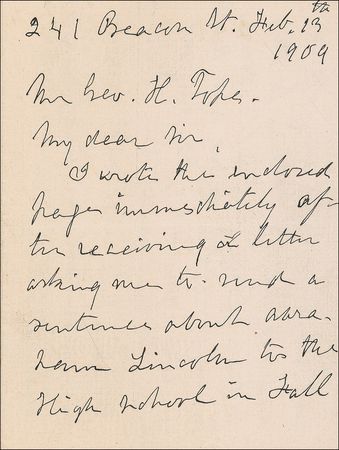 241 Beacon St. Feb. 13th
1909
Mr Geo. H. Topes.
My dear Sir,
I wrote the enclosed
pages immediately af-
ter receiving a letter
asking me to send a
sentence about Abra-
ham Lincoln to the
High School in Fall